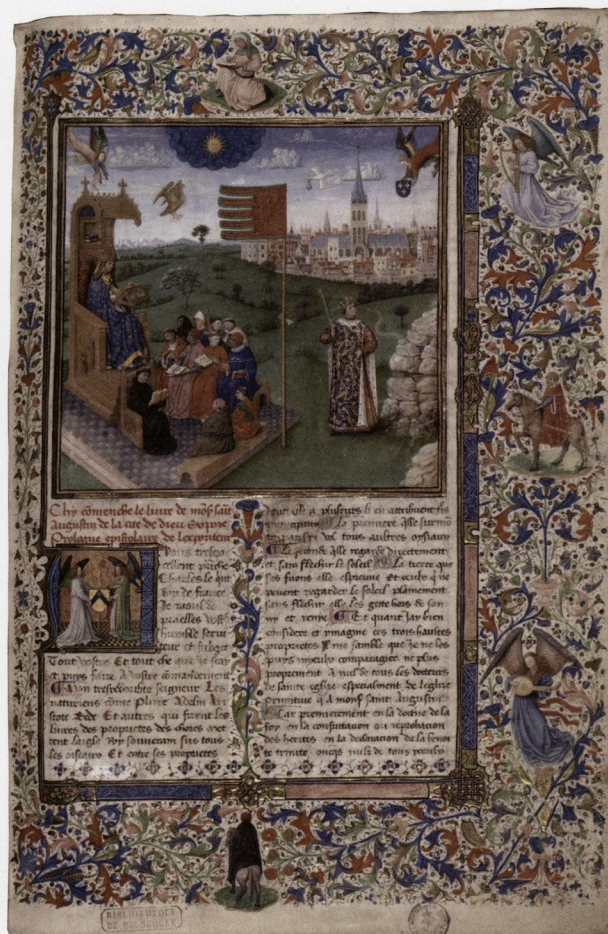 Chy cōmenche le liure de mōs saīt
Augustin de la cite de dieu Et p̄mie
Prologue epistolaire de lexpositeur
tres exc
cellent prīche
Charles le qnt
Roy de france
Je raoul de
praelles vost̄
humble serui
teur et subget
Tout vostre Et tout che que Je scay
et puys faire a vostre cōmandement
Mon tresredoubte seigneur Les
naturiens cōme Pline Adelin Ari
stote Bede Et autres qui firent les
liures des proprietes des choses met
tent laigle Roy souuerain sur tous
les oiseaux Et entre ses proprietes
dont ils a pluseurs lj en attribuent
La premiere q̄lle surmō
tous autres oyseaux
La secōde q̄lle regarde directement
et sans flechir le soleil La tierce que
ses faons elle espreuue et ceulx q̄ ne
peuent regarder le soleil plainement
sans flechir elle les gete hors de son
ny et renye Et quant Jay bien
considere et ymagine ces trois haultes
proprietes Jl me samble que Je ne les
puys myeulx comparagier ne plus
proprement A nul de tous les docteurs
de sainte eglise especialment de leglise
prīmitiue q̄ A mons̄ saint Augustin
Car premierement en la doctrine de la
foy en la confutacion ou reprobacion
des herites en la declaration de la benoi
te trinite oncqs nuls de tous
BIBLIOTHEQUE
DE BOURGOGNE